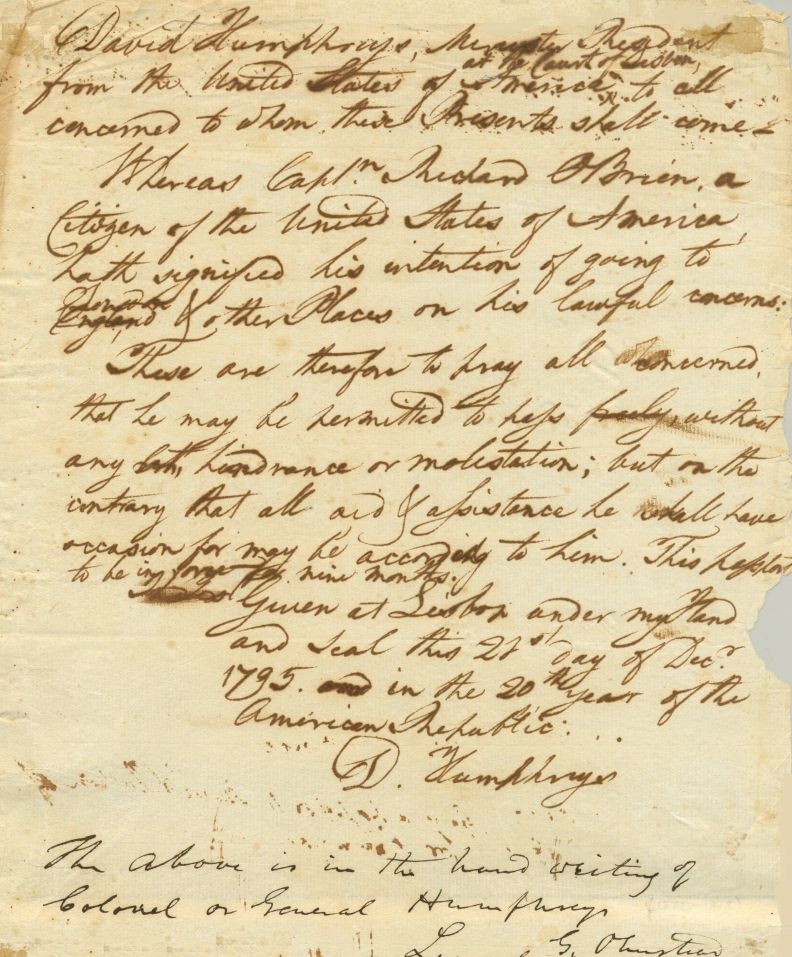 David Humphreys, Minister Resident
at the Court of Lisbon,
from the United States of America, to all
concerned to whom these Presents shall come
Whereas Captn. Richard OBrien, a
Citizen of the United States of America,
hath signified his intention of going to
London
England & other Places on his lawful concerns:
These are therefore to pray all concerned,
that he may be permitted to pass freely, without
any let, hindrance or molestation; but on the
contrary that all aid & assistance he shall have
occasion for may be according to him. This passport
to be in force for nine months.
Given at Lisbon under my Hand
and seal this 21st day of Decr.
1795. and in the 20th year of the
American Republic.
D. Humphreys
The above is in the hand writing of
Colonel or General Humphreys
G. Olmsted